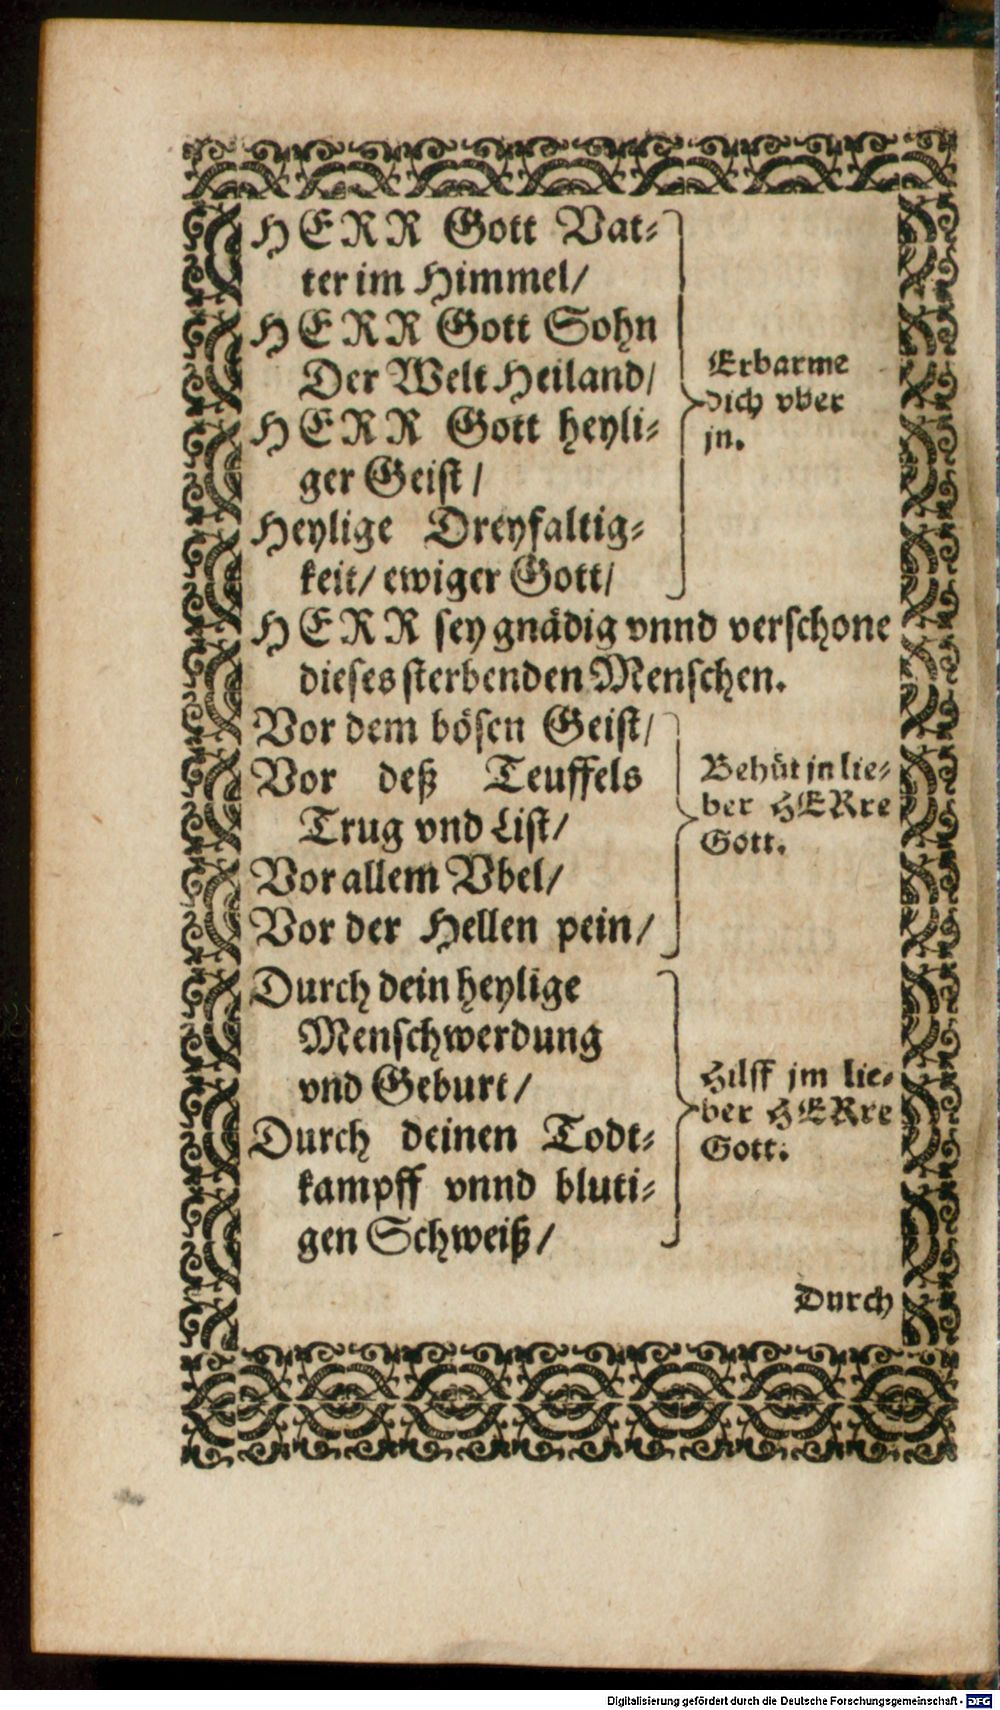 HERR Gott Vat⸗
ter im Himmel/
HERR Gott Sohn
Der Welt Heiland/
HERR Gott heyli⸗
ger Geist/
Heylige Dreyfaltig⸗
keit/ ewiger Gott/
Erbarme
dich vber
jn.
HERR sey gnädig vnnd verschone
dieses sterbenden Menschen.
Vor dem bösen Geist/
Vor deß Teuffels
Trug vnd List/
Vor allem Vbel/
Vor der Hellen pein/
Behüt jn lie⸗
ber HERre
Gott.
Durch dein heylige
Menschwerdung
vnd Geburt/
Durch deinen Todt⸗
kampff vnnd bluti⸗
gen Schweiß/
Hilff jm lie⸗
ber HERre
Gott.
Durch
Digitalisierung gefördert durch die Deutsche Forschungsgemeinschaft - DFG